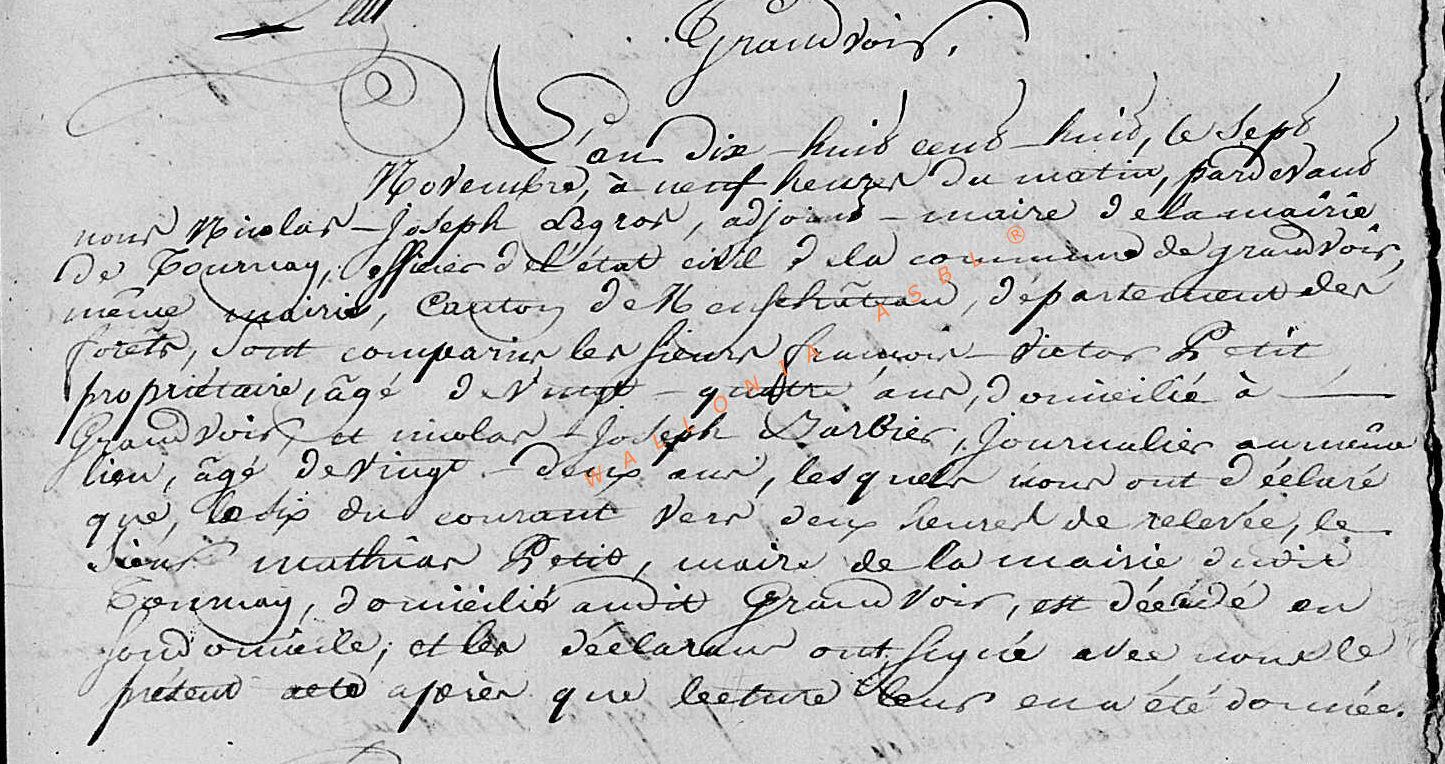 Grandvoir.
L'an dix-huit cent-huit, le sept
Novembre, à neuf heures du matin, pardevant
nous Nicolas-Joseph Legros, adjoint-maire de la mairie
de Tournay, officier de l'état civil de la commune de grandvoir,
même mairie, Canton de Neufchâteau, département des
forêts, sont comparus les sieurs françois-Victor Petit
propriétaire, âgé de vingt-quatre ans, domicilié à
Grandvoir, et nicolas-Joseph Barbier, Journalier au même
lieu, âgé de vingt-deux ans, lesquels nous ont déclaré
que, le six du courant vers deux heures de relevée, le
Sieur mathias Petit, maire de la mairie dudit
Tournay, domicilié audit Grandvoir, est décédé en
son domicile; et les déclarans ont signé avec nous le
présent acte après que lecture leur en a été donnée.
WALLONIA ASBL ®